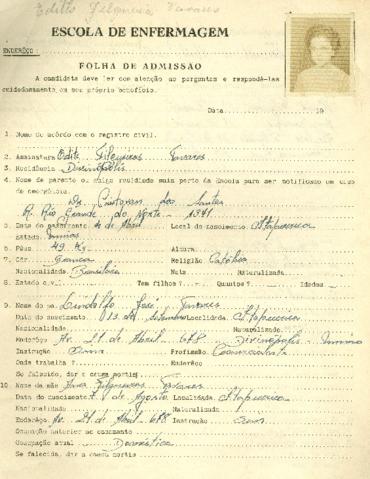 Edite Filgueiras Tavares
ESCOLA DE ENFERMAGEM
ENDERÊÇO:
FOLHA DE ADMISSÃO
A candidata deve ler com atenção as perguntas e respondê-las
cuidadosamente em seu próprio benefício.
Data 19
1. Nome de acôrdo com o registro civil.
2. Assinatura Edite Filgueiras Tavares
3. Residência Divinópolis
4. Nome do parente ou amigo residindo mais perto da Escola para ser notificado em caso
de emergência.
dos Santos
R. Rio Grande do Norte - 1341
5. Data do nascimento de Abril Local do nascimento Itapecerica
Estado Minas
6. Pêso 49 K. Altura
7. Côr Branca Religião Católica
Nacionalidade Brasileira Nata Naturalizada
8. Estado civil Tem filhos? Quantos? Idades
9. Nome do pai Lindolfo José Tavares
Data do nascimento 13 de Setembro Localidade Itapecerica
Nacionalidade Naturalizado
Enderêço Av. 21 de Abril 678 Divinópolis Minas
Instrução Profissão Comerciante
Onde trabalha? Enderêço
Se falecido, dar a causa mortis
10. Nome da mãe Filgueiras Tavares
Data do nascimento de Agosto Localidade Itapecerica
Nacionalidade Naturalizada
Enderêço Av. 21 de Abril 678 Instrução
Ocupação anterior ao casamento
Ocupação atual Doméstica
Se falecida, dar a causa mortis